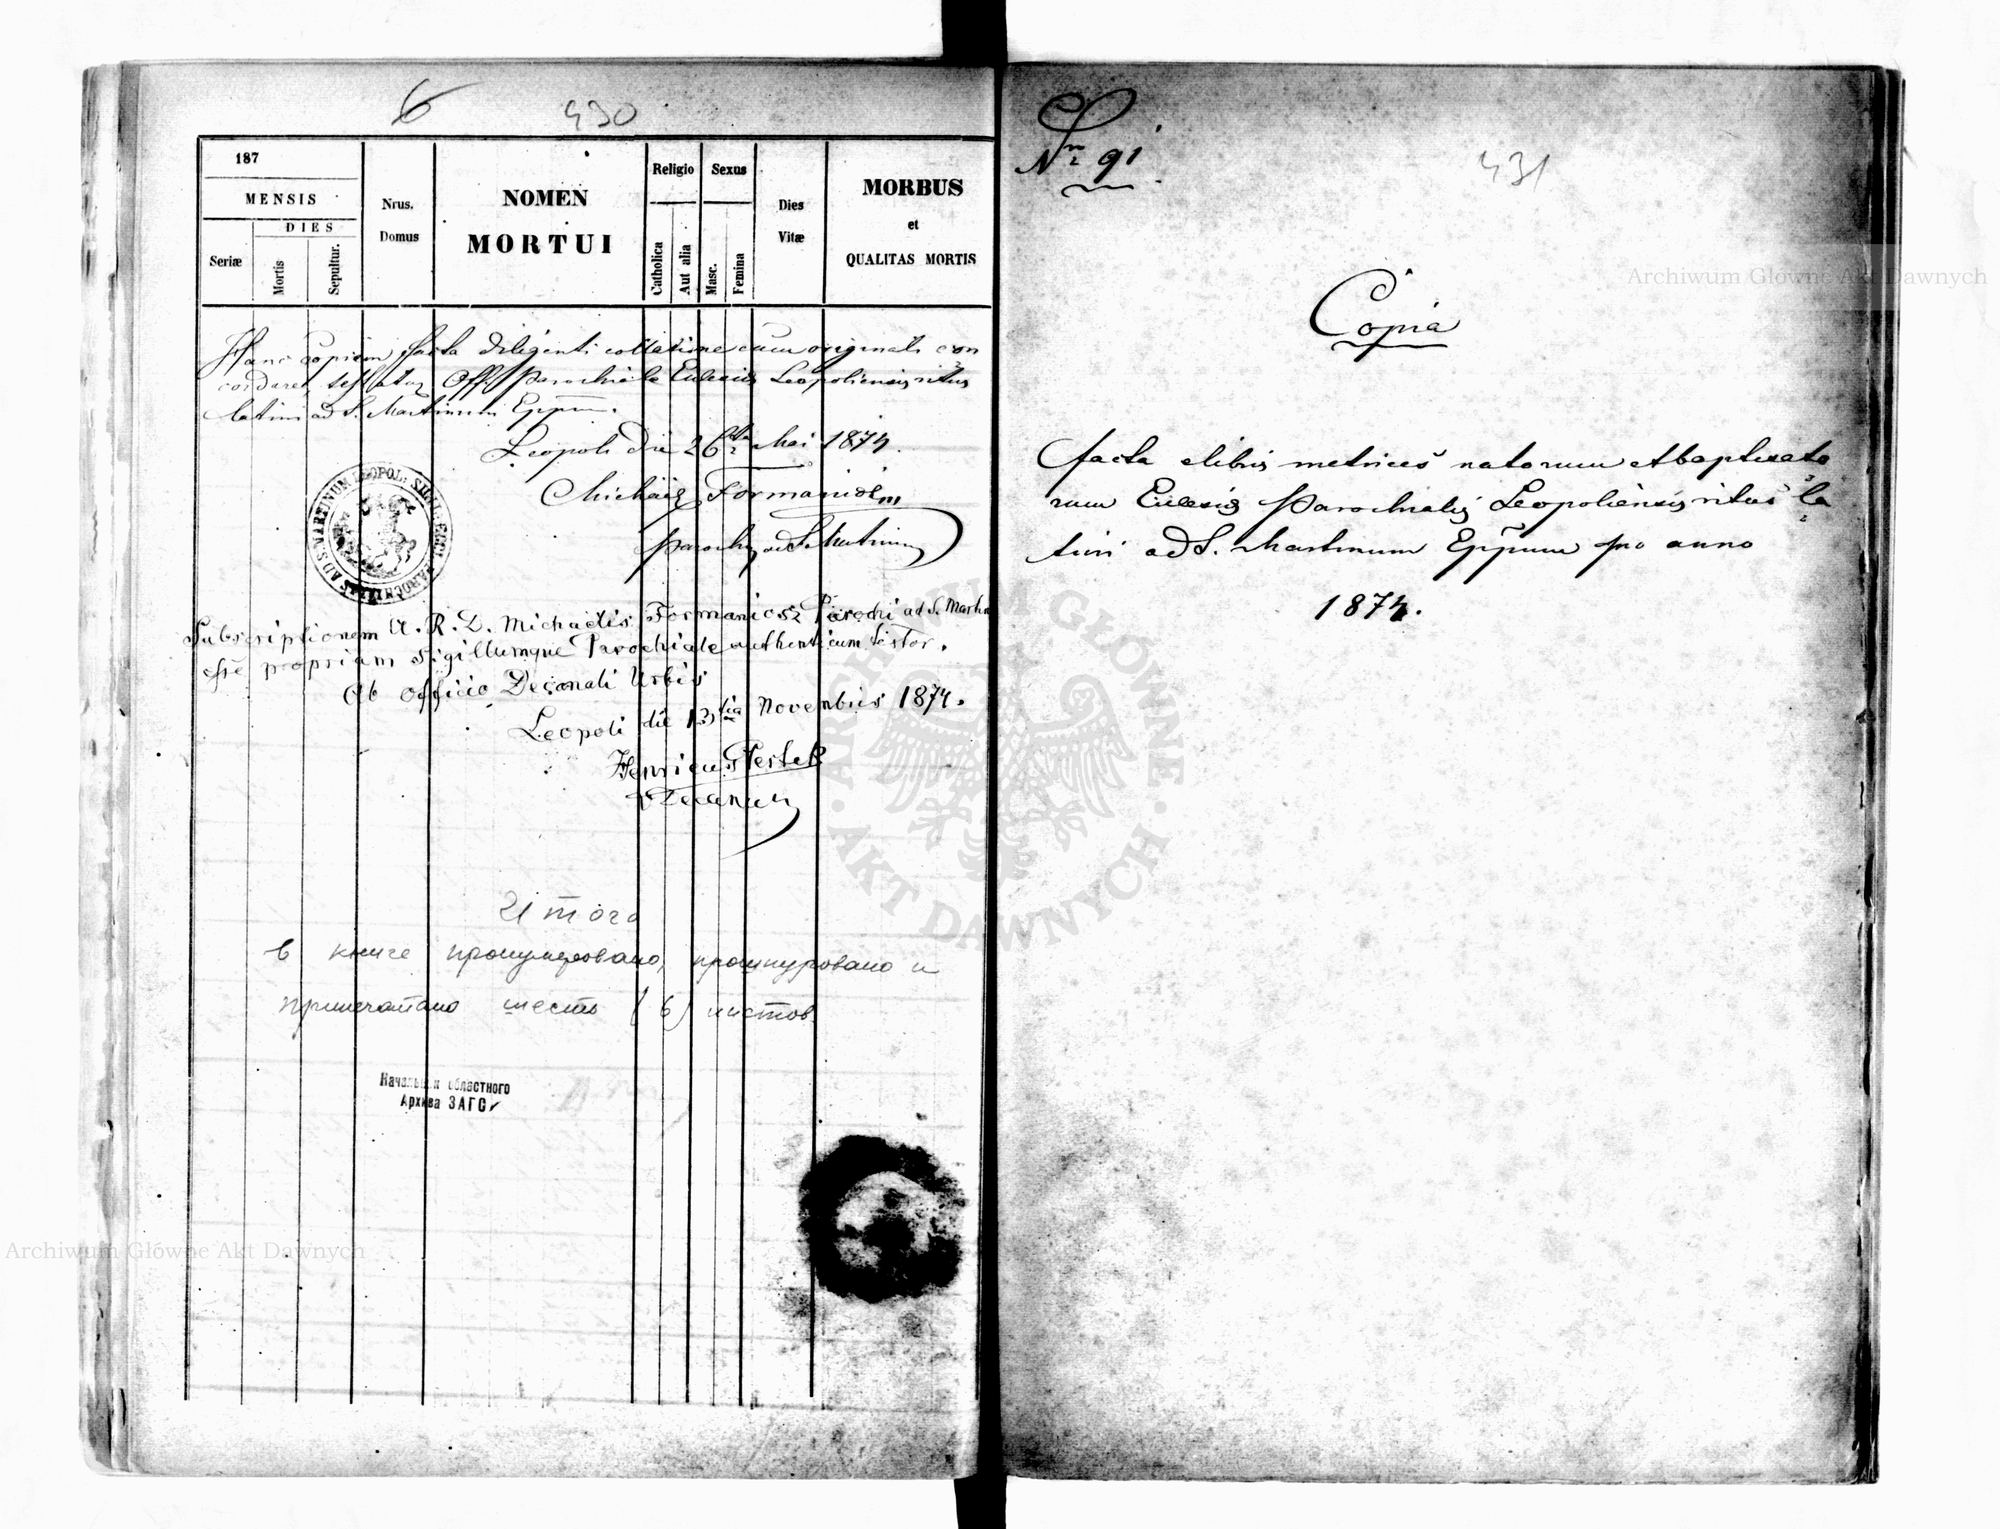 6
430
187
MENSIS
DIES
Seriæ
Mortis
Sepultur.
Nrus.
Domus
NOMEN
MORTUI
Religio
Catholica
Aut alia
Sexus
Masc.
Femina
Dies
Vitæ
MORBUS
et
QUALITAS MORTIS
Hanc copiam facta diligenti collatione cum originali con
cordare, testatur Off. Parochiale Ecclesiæ Leopoliensis ritus
latini ad S. Martinum Eppum.
Leopoli die 26ta Mai 1874.
Michäel Formaniosz
Parochus ad S. Martinum
Subscriptionem A. R. D. Michaëlis Formanicsz Parochi ad S. Martin
esse propriam sigillumque Parochiale authenticum testor.
Ab officio Decanali Urbis
Leopoli die 13tia Novembris 1874.
Henricus
Decanus
Итого
в книге пронумеровано, прошнуровано и
припечатано шесть (6) листов.
Начальник областного
Архива ЗАГС
Nr 91
431
Copia
facta e libris metrices natorum et baptisato
rum Ecclesiæ Parochialis Leopoliensis ritus la
tini ad S. Martinum Eppum pro anno
1874.
Archiwum Główne Akt Dawnych
Archiwum Główne Akt Dawnych
ARCHIWUM GŁÓWNE · AKT DAWNYCH ·